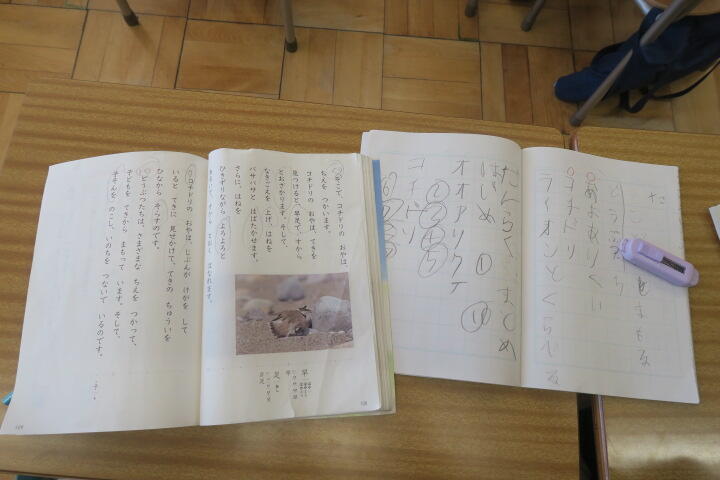 そこで、コチドリの おやは、
ちえを つかいます。
コチドリの おやは、てきを
見つけると、早足で、すから
とおざかります。そして、
なきごえを 上げ、はねを
バサバサと はばたかせます。
さらに、はねを
ひきずりながら よろよろと
はなれます。
早
足
コチドリの おやは、じぶんが けがを して
いると てきに 見せかけて、てきの ちゅういを
ひなから そらすのです。
どうぶつたちは、さまざまな ちえを つかって、
子どもを てきから まもって います。そして、
子そんを のこし、いのちを つないで いるのです。
コチドリ
ライオンとくらべる
だんらく まとめ
はじめ ① ⑪
オオアリクイ
②③④⑤
コチドリ